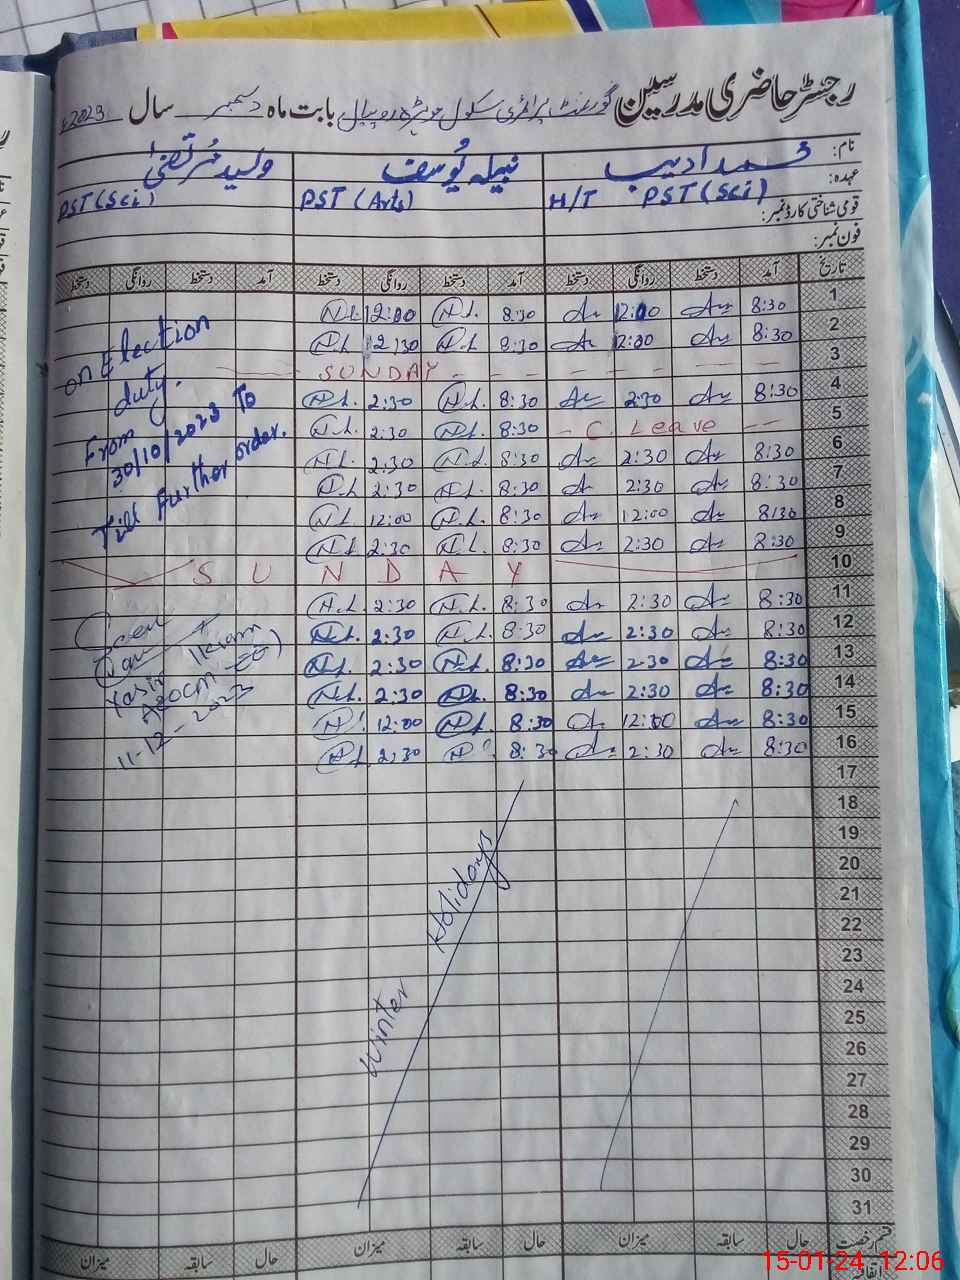 رجسٹر حاضری مدرسین گورنمنٹ پرائمری سکول بابت ماہ دسمبر سال 2023ء
نام: محمد ادیب نبیلہ یوسف ولید مرتضیٰ
عہدہ: H/T PST (Sci) PST (Arts) PST (Sci)
قومی شناختی کارڈ نمبر:
فون نمبر:
تاریخ آمد دستخط روانگی دستخط آمد دستخط روانگی دستخط آمد دستخط روانگی دستخط
1 8:30 12:00 8:30 12:00
2 8:30 12:00 8:30 12:30
3 SUNDAY
4 8:30 2:30 8:30 2:30
5 C. Leave 8:30 2:30
6 8:30 2:30 8:30 2:30
7 8:30 2:30 8:30 2:30
8 8:30 12:00 8:30 12:00
9 8:30 2:30 8:30 2:30
10 SUNDAY
11 8:30 2:30 8:30 2:30
12 8:30 2:30 8:30 2:30
13 8:30 2:30 8:30 2:30
14 8:30 2:30 8:30 2:30
15 8:30 12:00 8:30 12:00
16 8:30 2:30 8:30 2:30
17
18
19
20
21
22
23
24
25
26
27
28
29
30
31
on Election
duty.
From
30/10/2023 To
Till further order.
Seen
Yasir Ikram
11-12-2023
Winter Holidays
قسم رخصت حال سابقہ میزان حال سابقہ میزان حال سابقہ میزان
15-01-24 12:06